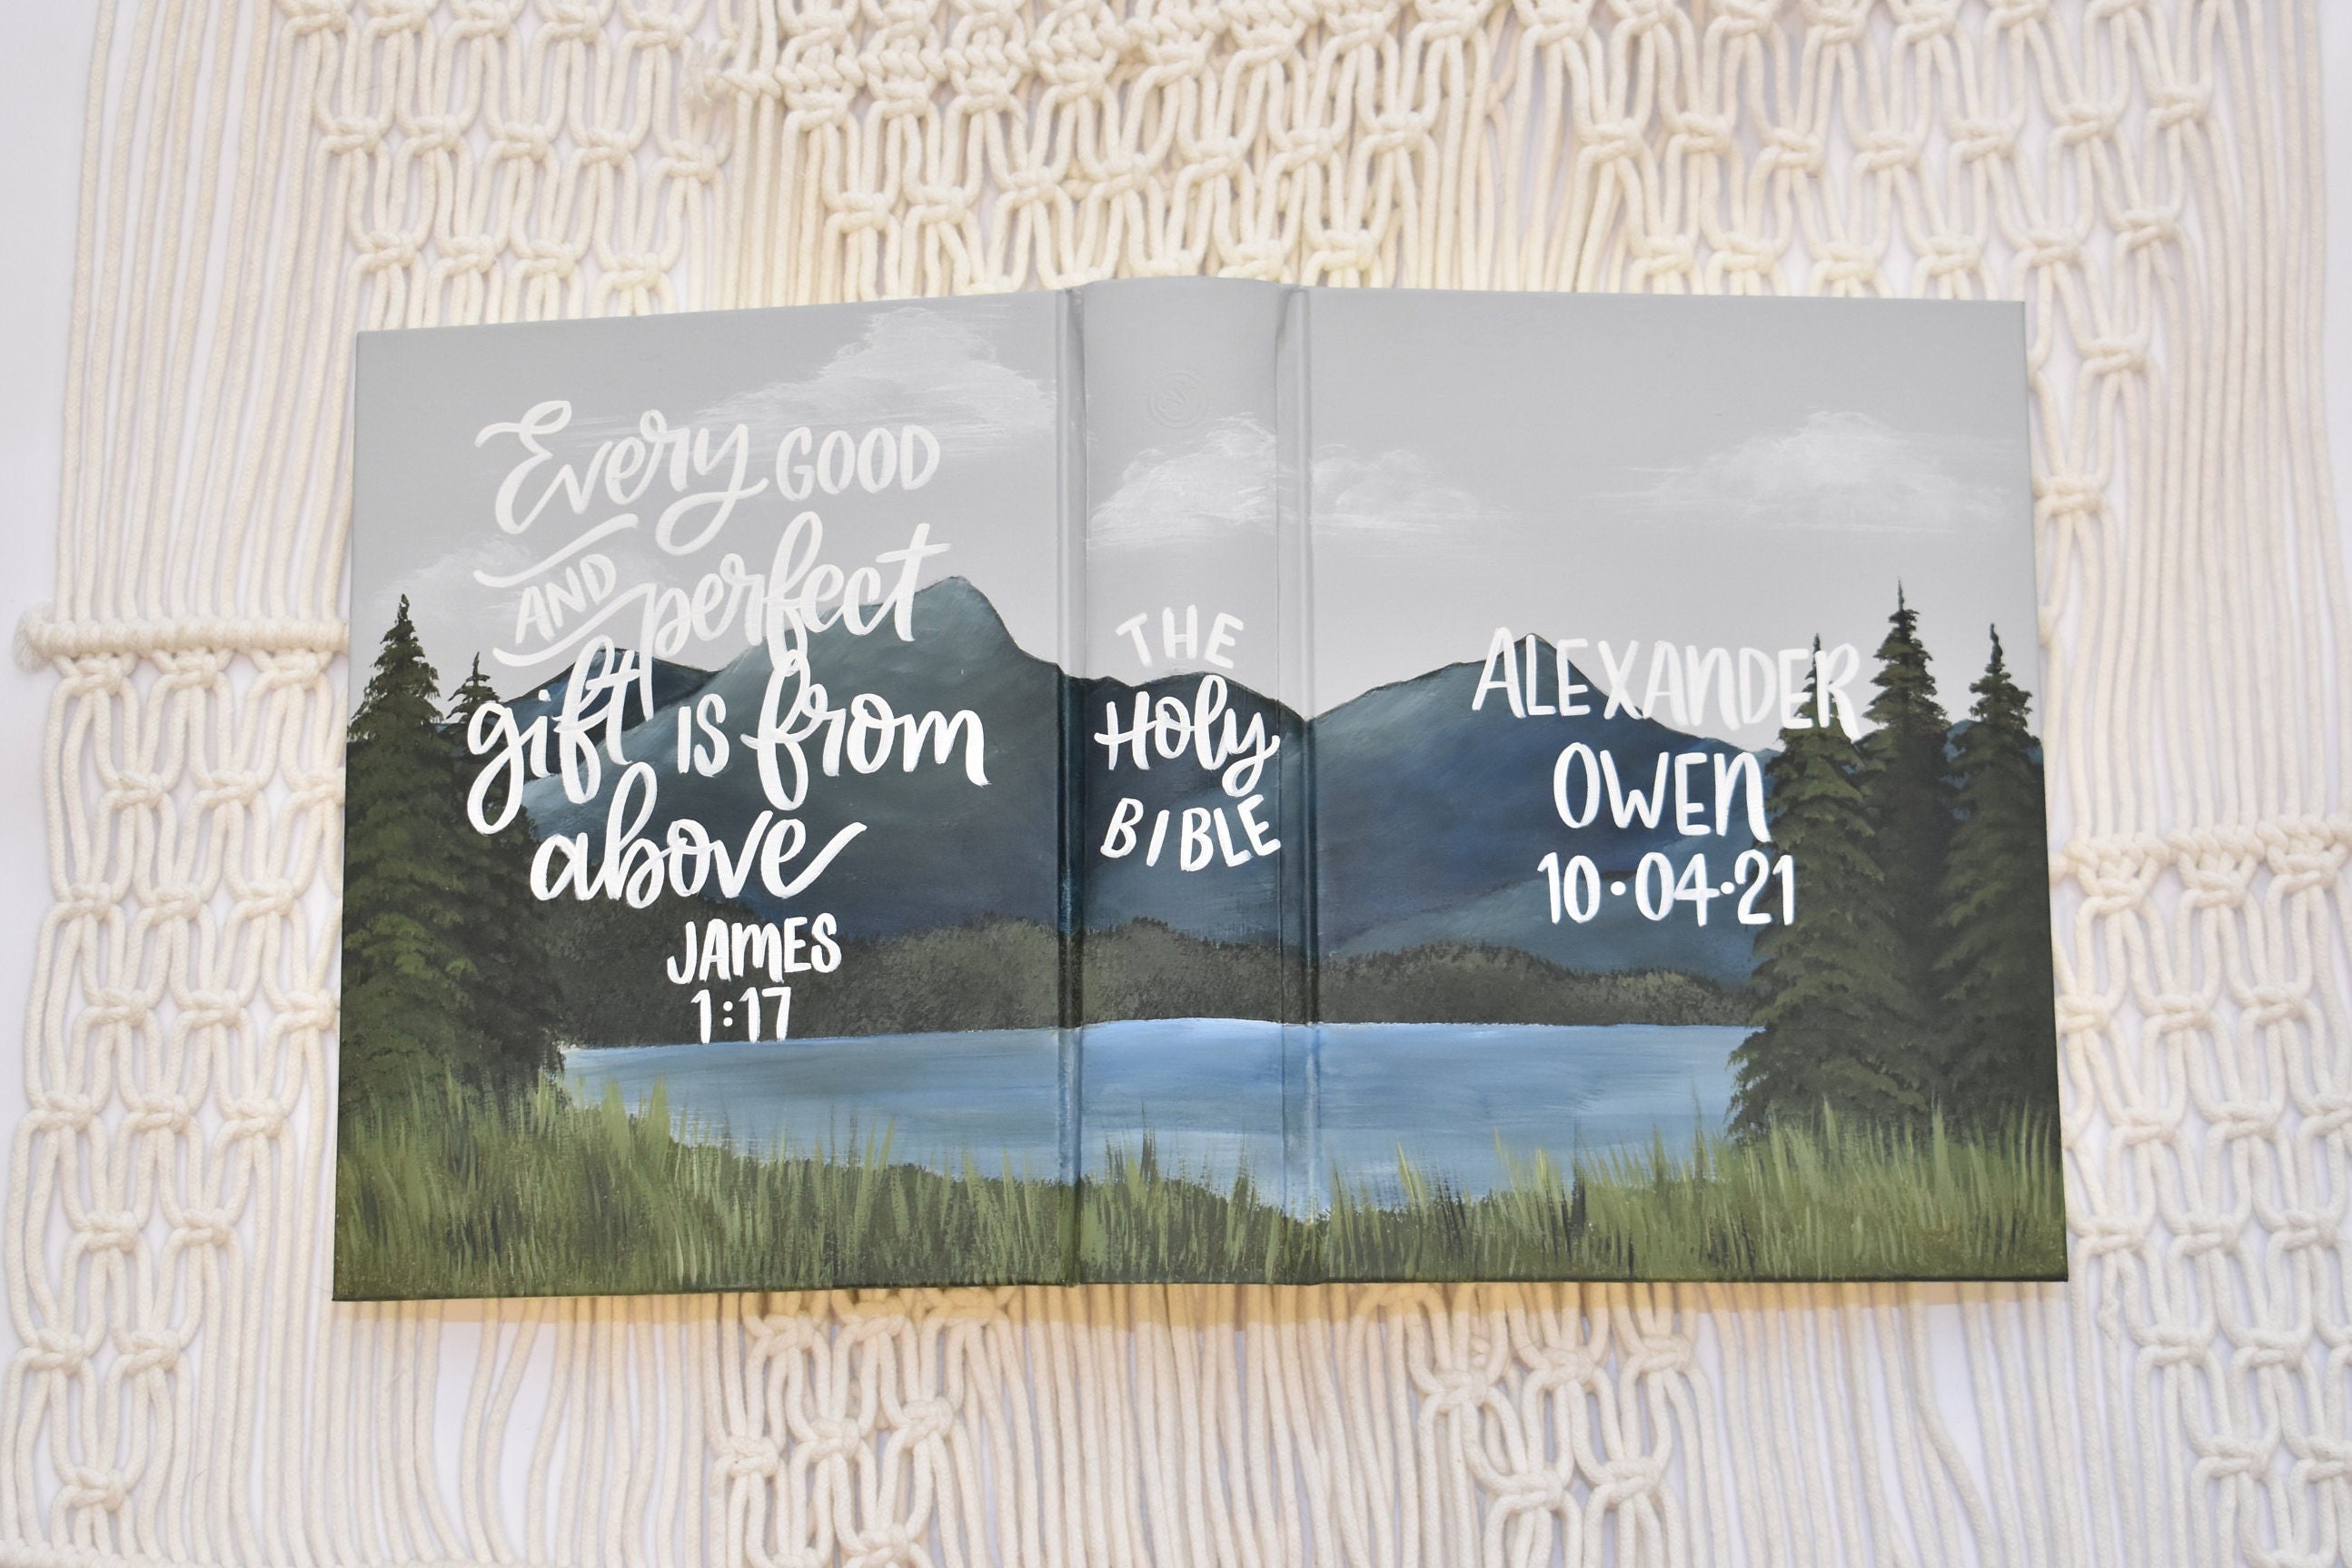 Every GOOD
AND perfect
gift IS from
above
JAMES
1:17
THE
Holy
BIBLE
ALEXANDER
OWEN
10•04•21